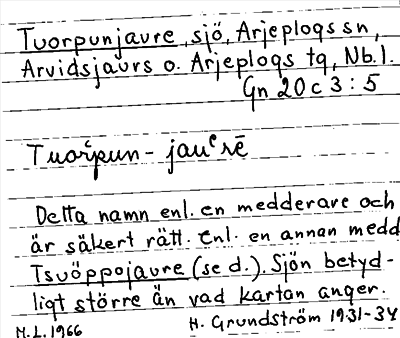 Tuorpunjaure, sjö, Arjeplogs sn,
Arvidsjaurs o. Arjeplogs tg, Nb. l.
Gn 20 c 3 : 5
Tuoŕpun - jauᵉrē
Detta namn enl. en medderare och
är säkert rätt. Enl. en annan medd
Tsuöppojaure (se d.). Sjön betyd-
ligt större än vad kartan anger.
M.L. 1966 H. Grundström 1931-34